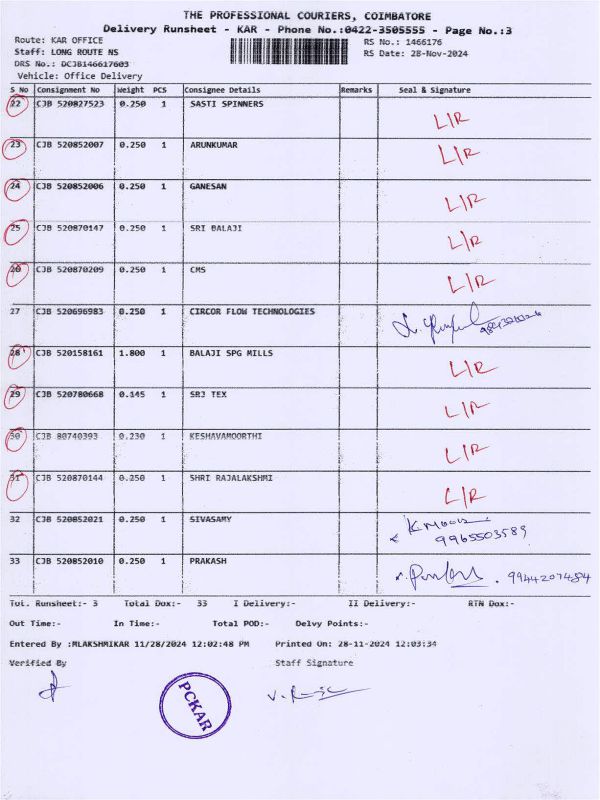 THE PROFESSIONAL COURIERS, COIMBATORE
Delivery Runsheet - KAR - Phone No.:0422-3505555 - Page No.:3
Route: KAR OFFICE
RS No.: 1466176
Staff: LONG ROUTE NS
RS Date: 28-Nov-2024
DRS No.: DCJB146617603
Vehicle: Office Delivery
S No Consignment No Weight PCS Consignee Details Remarks Seal & Signature
22 CJB 520827523 0.250 1 SASTI SPINNERS L/R
23 CJB 520852007 0.250 1 ARUNKUMAR L/R
24 CJB 520852006 0.250 1 GANESAN L/R
25 CJB 520870147 0.250 1 SRI BALAJI L/R
26 CJB 520870209 0.250 1 CMS L/R
27 CJB 520696983 0.250 1 CIRCOR FLOW TECHNOLOGIES
28 CJB 520158161 1.800 1 BALAJI SPG MILLS L/R
29 CJB 520780668 0.145 1 SRJ TEX L/R
30 CJB 80740393 0.230 1 KESHAVAMOORTHI L/R
31 CJB 520870144 0.250 1 SHRI RAJALAKSHMI L/R
32 CJB 520852021 0.250 1 SIVASAMY
9965503589
33 CJB 520852010 0.250 1 PRAKASH
Tot. Runsheet:- 3 Total Dox:- 33 I Delivery:- II Delivery:- RTN Dox:-
Out Time:- In Time:- Total POD:- Delvy Points:-
Entered By :MLAKSHMIKAR 11/28/2024 12:02:48 PM Printed On: 28-11-2024 12:03:34
Verified By Staff Signature
PCKAR